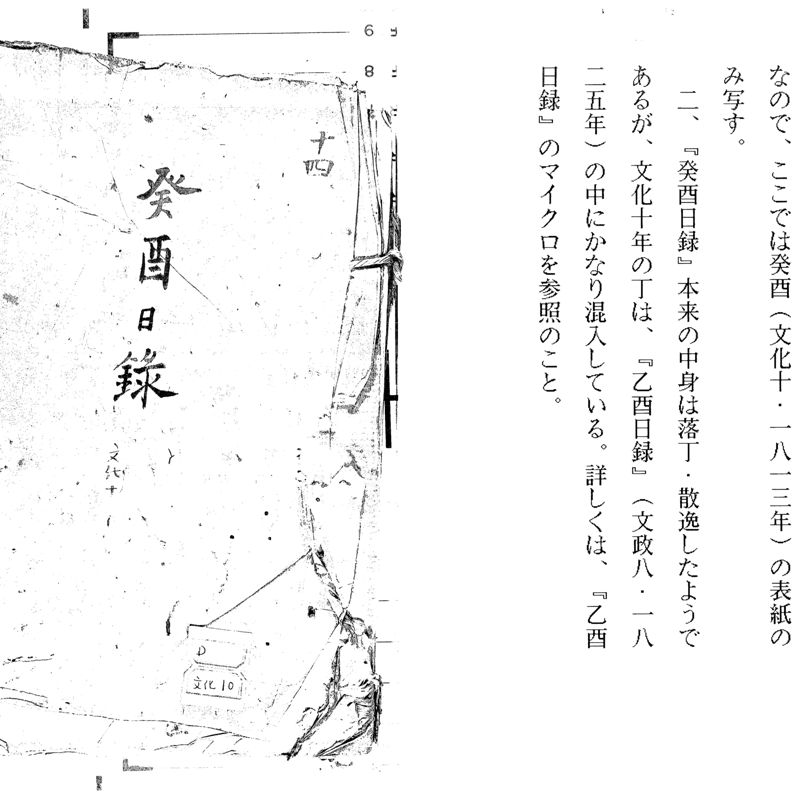 なので、ここでは癸酉（文化十・一八一三年）の表紙の
み写す。
二、『癸酉日録』本来の中身は落丁・散逸したようで
あるが、文化十年の丁は、『乙酉日録』（文政八・一八
二五年）の中にかなり混入している。詳しくは、『乙酉
日録』のマイクロを参照のこと。
十四
癸酉日録
文化十
D
文化10
9
8